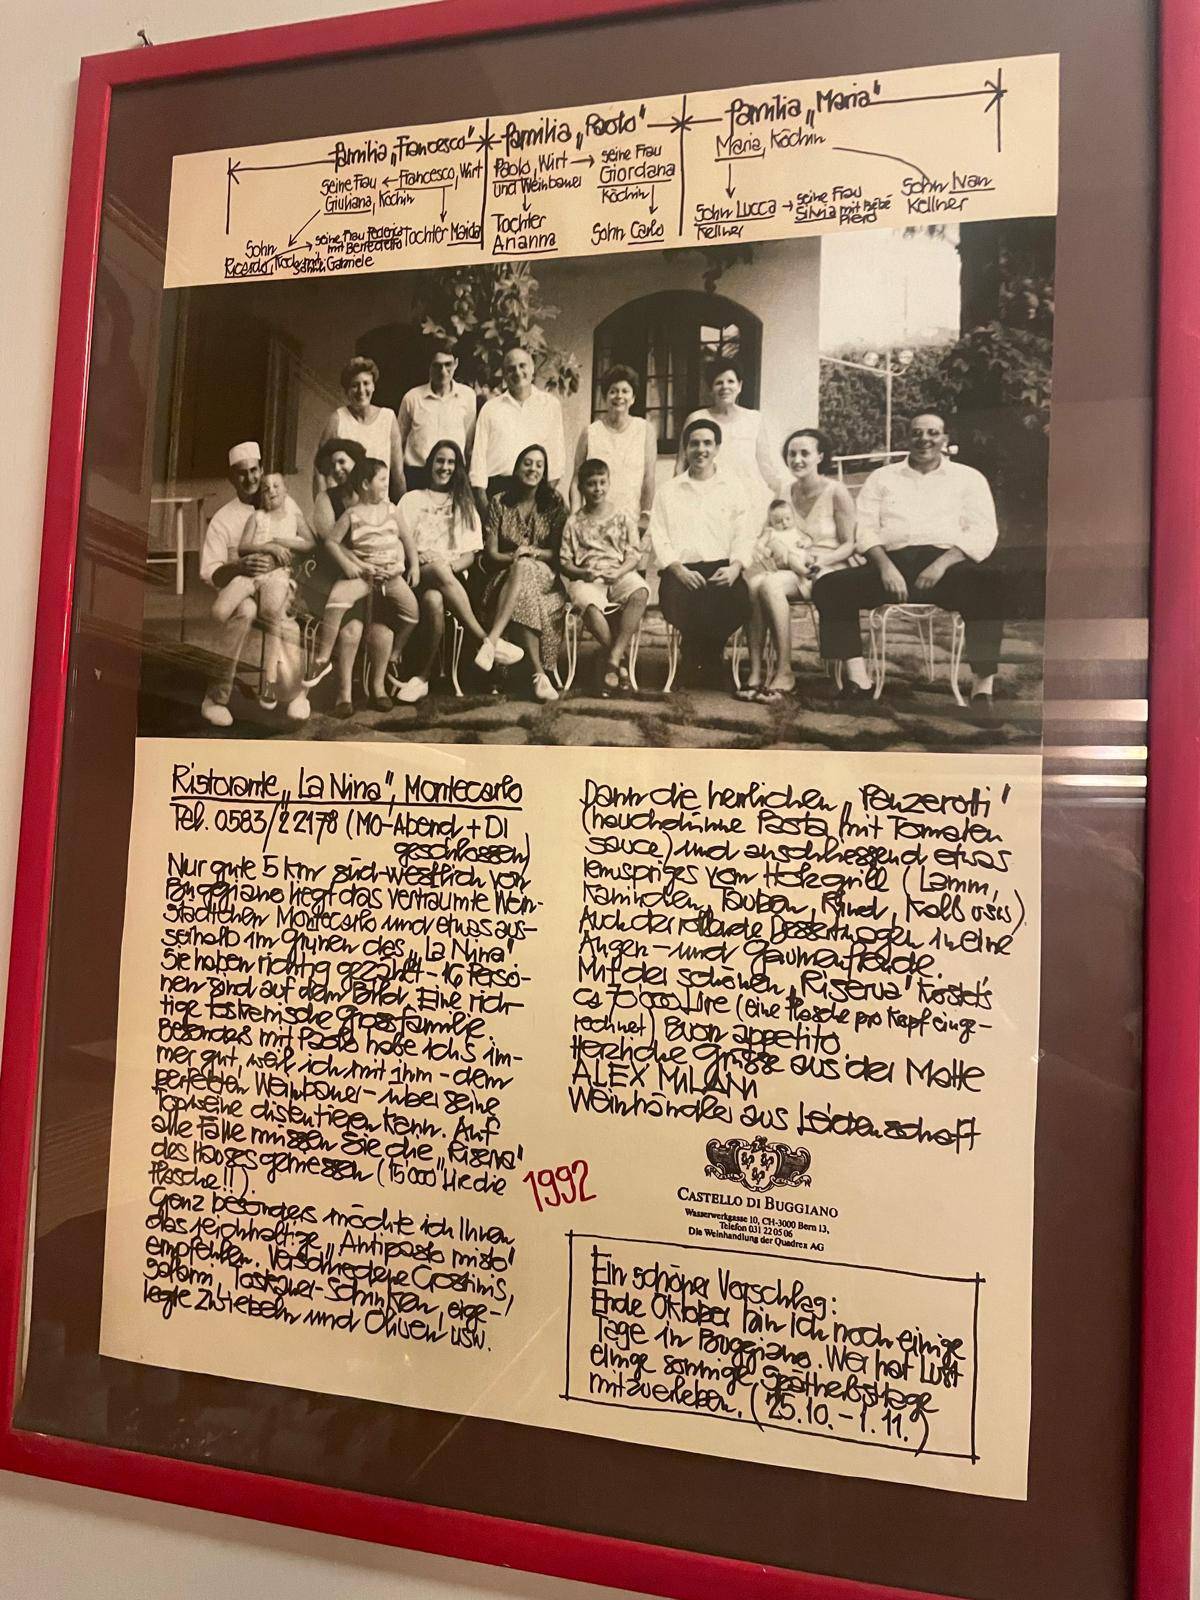 familia „Francesco"
familia „Paolo"
familia „Maria"
seine Frau ← Francesco, Wirt
Giuliana, Köchin
Sohn
Ricardo, Koch
seine Frau Federica
mit Benedetta
mit
Sohn Gabriele
Tochter Maida
Paolo, Wirt → seine Frau
und Weinbauer
Giordana
Köchin
Tochter
Arianna
Sohn Carlo
Maria, Köchin
Sohn Lucca → seine Frau
Kellner
Silvia mit Bébé
Piero
Sohn Ivan
Kellner
Ristorante „La Nina", Montecarlo
Tel. 0583/22178 (MO-Abend + DI
geschlossen)
Nur gute 5 km süd-westlich von
Buggiano liegt das verträumte Wein-
städtchen Montecarlo und etwas aus-
serhalb im Grünen das „La Nina"
Sie haben richtig gezählt - 16 Perso-
nen sind auf dem Bild. Eine rich-
tige toskanische Grossfamilie.
Besonders mit Paolo habe ich's im-
mer gut, weil ich mit ihm - dem
perfekten Weinbauer - über seine
Topweine diskutieren kann. Auf
alle Fälle müssen Sie die „Riserva"
des Hauses geniessen (15'000 Lire die
Flasche!!).
Ganz besonders möchte ich Ihnen
das reichhaltige „Antipasto misto"
empfehlen. Verschiedene Crostinis,
Salami, Toskaner-Schinken, einge-
legte Zwiebeln und Oliven usw.
1992
Dann die herrlichen „Panzerotti"
(hauchdünne Pasta mit Tomaten
sauce) und anschliessend etwas
knuspriges vom Holzgrill (Lamm,
Kaninchen, Tauben, Rind, Kalb usw.)
Auch der rollende Dessertwagen ist eine
Augen- und Gaumenfreude.
Mit der schönen „Riserva" kostet's
ca 70'000 Lire (eine Flasche pro Kopf einge-
rechnet) Buon appetito
Herzliche Grüsse aus der Matte
ALEX MILANI
Weinhändler aus Leidenschaft
CASTELLO DI BUGGIANO
Wasserwerkgasse 10, CH-3000 Bern 13,
Telefon 031 22 05 06
Die Weinhandlung der Quadrex AG
Ein schöner Vorschlag:
Ende Oktober bin ich noch einige
Tage in Buggiano. Wer hat Lust
einige sonnige Spätherbsttage
mitzuerleben. (25.10. - 1.11.)